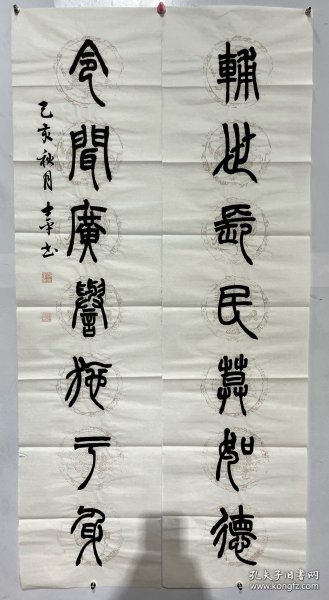 輔世長民莫如德
令聞廣譽施于身
己亥秋月 士平书
孔夫子旧书网
www.kongfz.com